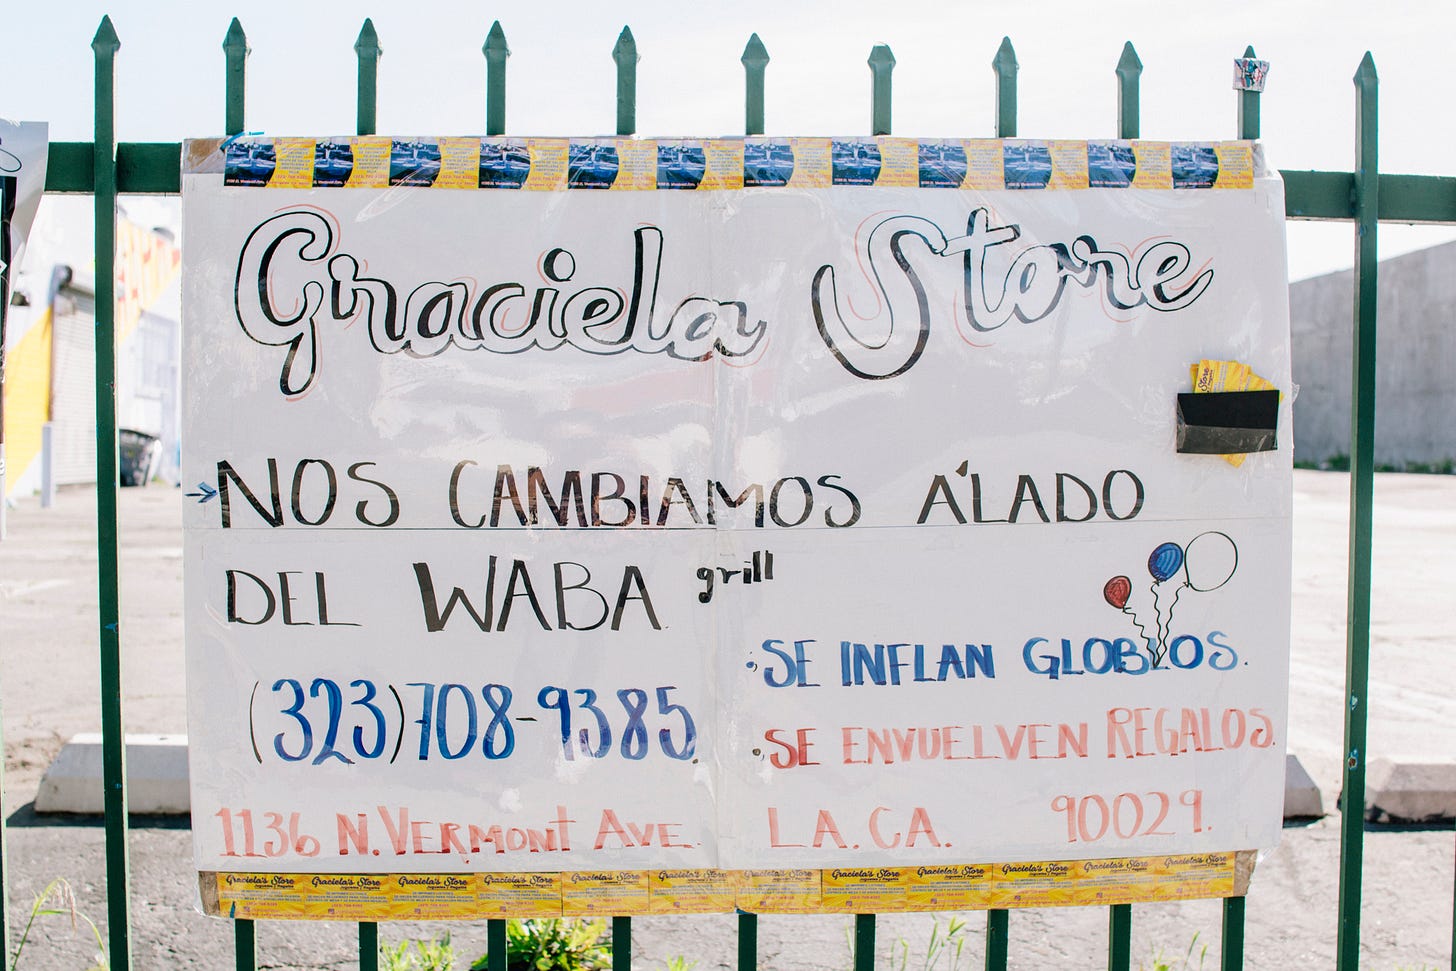 Graciela Store
NOS CAMBIAMOS A'LADO
DEL WABA grill
(323)708-9385
• SE INFLAN GLOBLOS.
• SE ENVUELVEN REGALOS.
1136 N. VERMONT AVE. L.A. CA. 90029.
Graciela's Store Graciela's Store Graciela's Store Graciela's Store Graciela's Store Graciela's Store Graciela's Store Graciela's Store Graciela's Store Graciela's Store Graciela's Store Graciela's Store